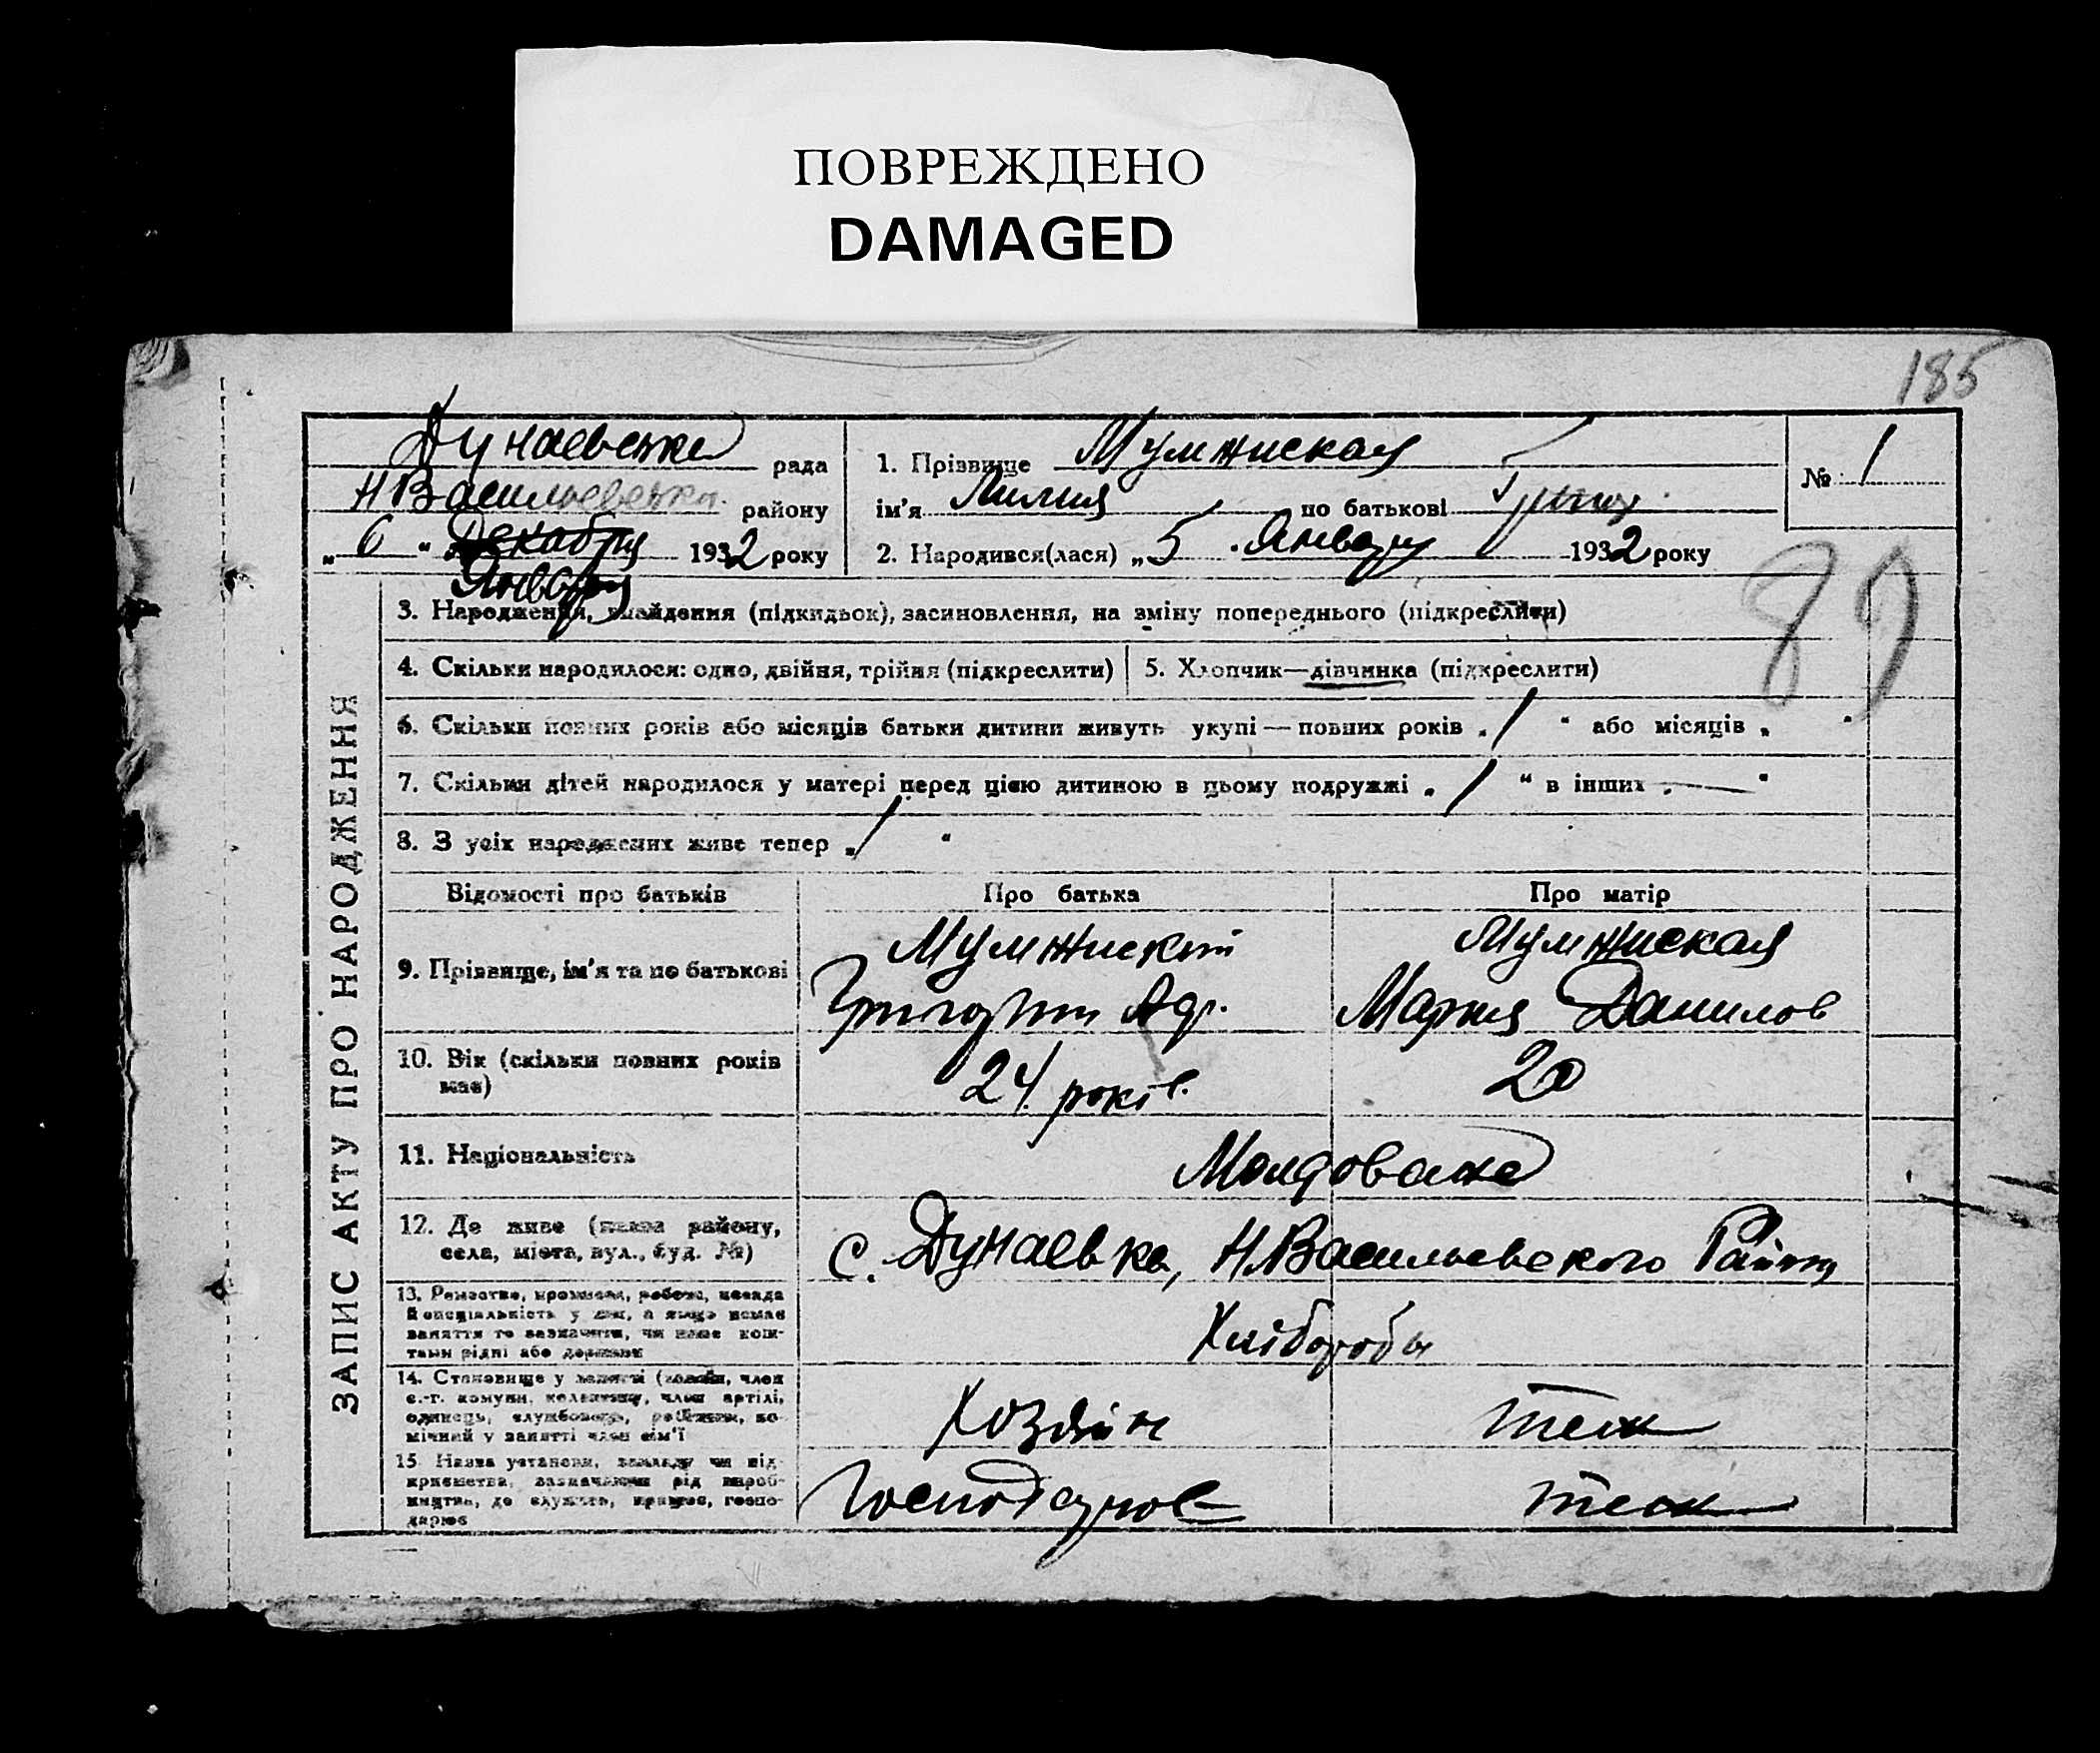 ПОВРЕЖДЕНО
DAMAGED
185
Дунаевська рада
Н Васильевська району
„ 6 “ Декабря 1932 року
Января
1. Прізвище Мумжиская
ім'я Лилия по батькові Григ.
2. Народився(лася) „ 5 Января 1932 року
№ 1
89
ЗАПИС АКТУ ПРО НАРОДЖЕННЯ
3. Народження, знайдення (підкидьок), засиновлення, на зміну попереднього (підкреслити)
4. Скільки народилося: одно, двійня, трійня (підкреслити)
5. Хлопчик—дівчинка (підкреслити)
6. Скільки повних років або місяців батьки дитини живуть укупі — повних років „ 1 “ або місяців „ “
7. Скільки дітей народилося у матері перед цією дитиною в цьому подружжі „ 1 “ в інших „ — “
8. З усіх народжених живе тепер „ 1 “
Відомості про батьків
Про батька
Про матір
9. Прізвище, ім'я та по батькові
Мумжиский
Григорий Адр.
Мумжиская
Мария Данилов
10. Вік (скільки повних років
має)
24 років.
20
11. Національність
Молдоване
12. Де живе (назва району,
села, міста, вул., буд. №)
с. Дунаевка, Н.Васильевского Района
13. Ремество, промисел, робота, посада
й спеціяльність у них, а якщо немає
заняття то зазначити, чи живе кош-
тами рідні або держави
Хлібороби
14. Становище у занятті (хазяїн, член
с.-г. комуни, колективу, член артілі,
одинець, службовець, робітник, по-
мічний у занятті член сім'ї
Хозяін
теж
15. Назва установи, закладу чи під-
приємства, зазначаючи рід вироб-
ництва, де служить, працює, госпо-
дарює
Господарює
теж